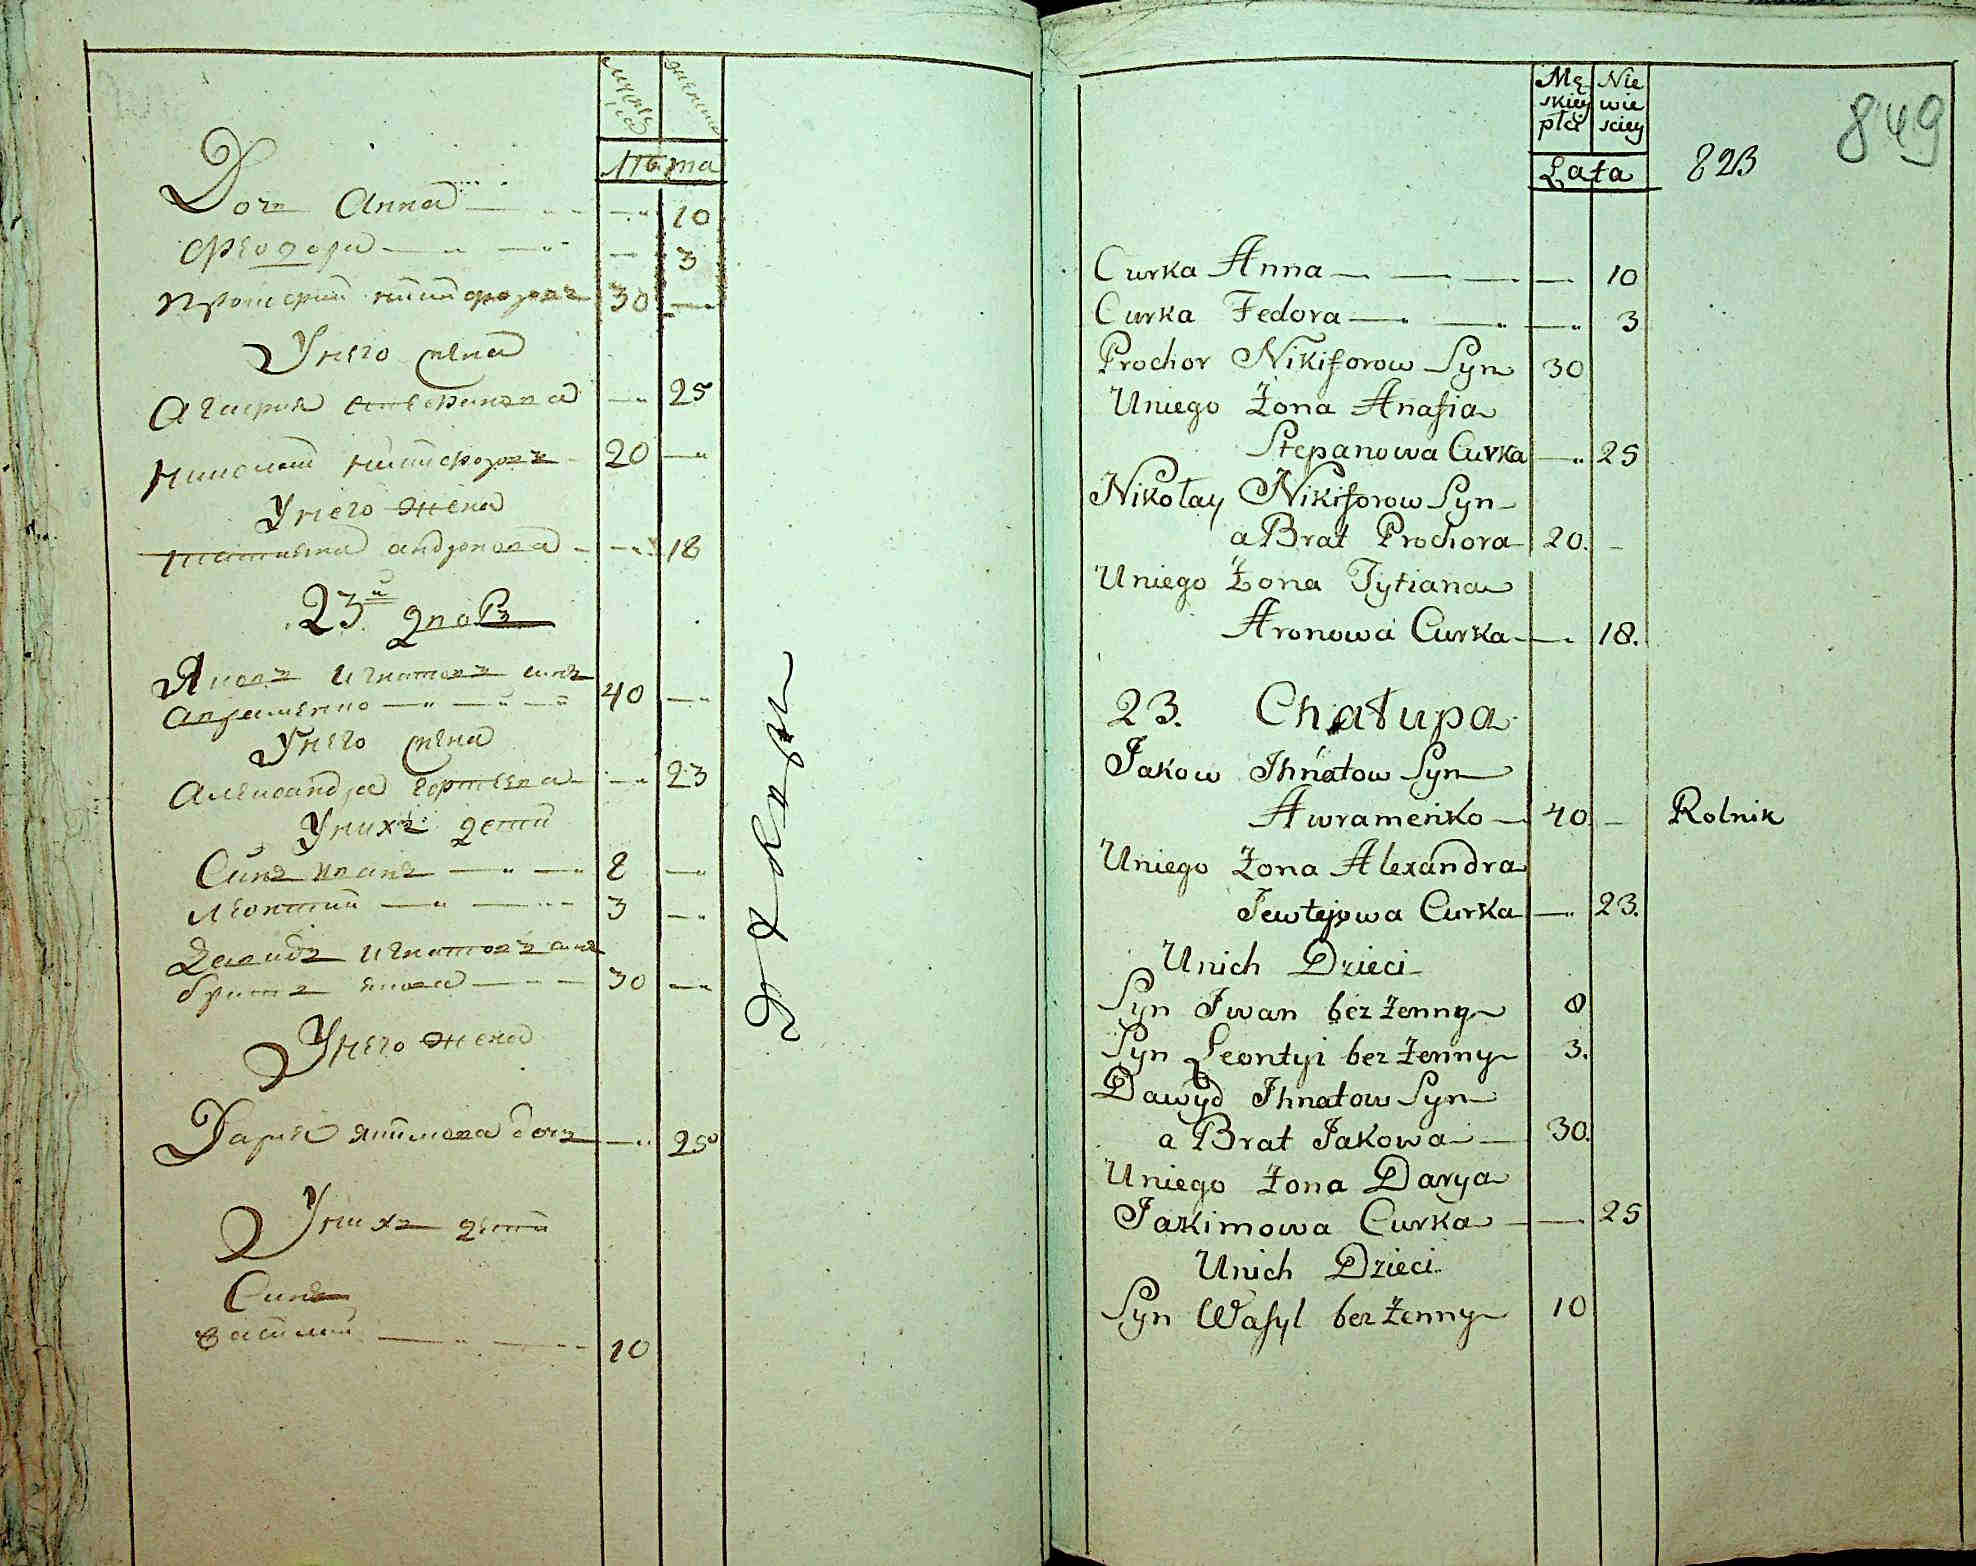 лѣта
Дочь Анна — 10
Феодора — 3
Прокофий Никифоровъ 30 —
У него жена
25
Николай Никифоровъ 20 —
У него жена
Татьяна — 18
23й дворъ
Яковъ Игнатовъ синъ
Авраменко — 40 —
У него жена
Александра — 23
У нихъ дети
Синъ Иванъ — 8 —
Леонтий — 3 —
Давидъ Игнатовъ синъ
братъ Якова — 30 —
У него жена
Дария Якимова дочь — 25
У нихъ дети
Синъ
Василий — 10
849
823
Mę Nie
skiey wie
płci sciey
Lata
Curka Anna — — — 10
Curka Fedora — — — 3
Prochor Nikiforow Syn 30
Uniego Żona Anasia
Stepanowa Curka — 25
Nikołay Nikiforow Syn
a Brat Prochora 20. –
Uniego Żona Tytiana
Aronowa Curka — 18.
23. Chałupa
Jakow Ihnatow Syn
Awramenko — 40. – Rolnik
Uniego Żona Alexandra
Jewtejowa Curka — 23.
Unich Dzieci
Syn Iwan bez Żenny 8
Syn Leontyi bez Żenny 3.
Dawyd Ihnatow Syn
a Brat Jakowa — 30.
Uniego Żona Darya
Jakimowa Curka — 25
Unich Dzieci
Syn Wasyl bez Żenny 10